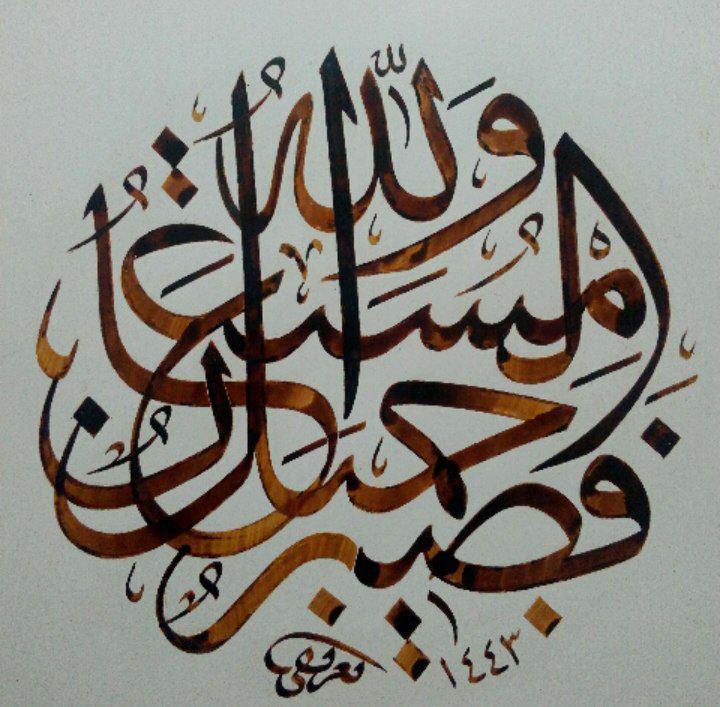 فَصَبْرٌ جَمِيلٌ
وَاللّٰهُ الْمُسْتَعَانُ
١٤٤٣